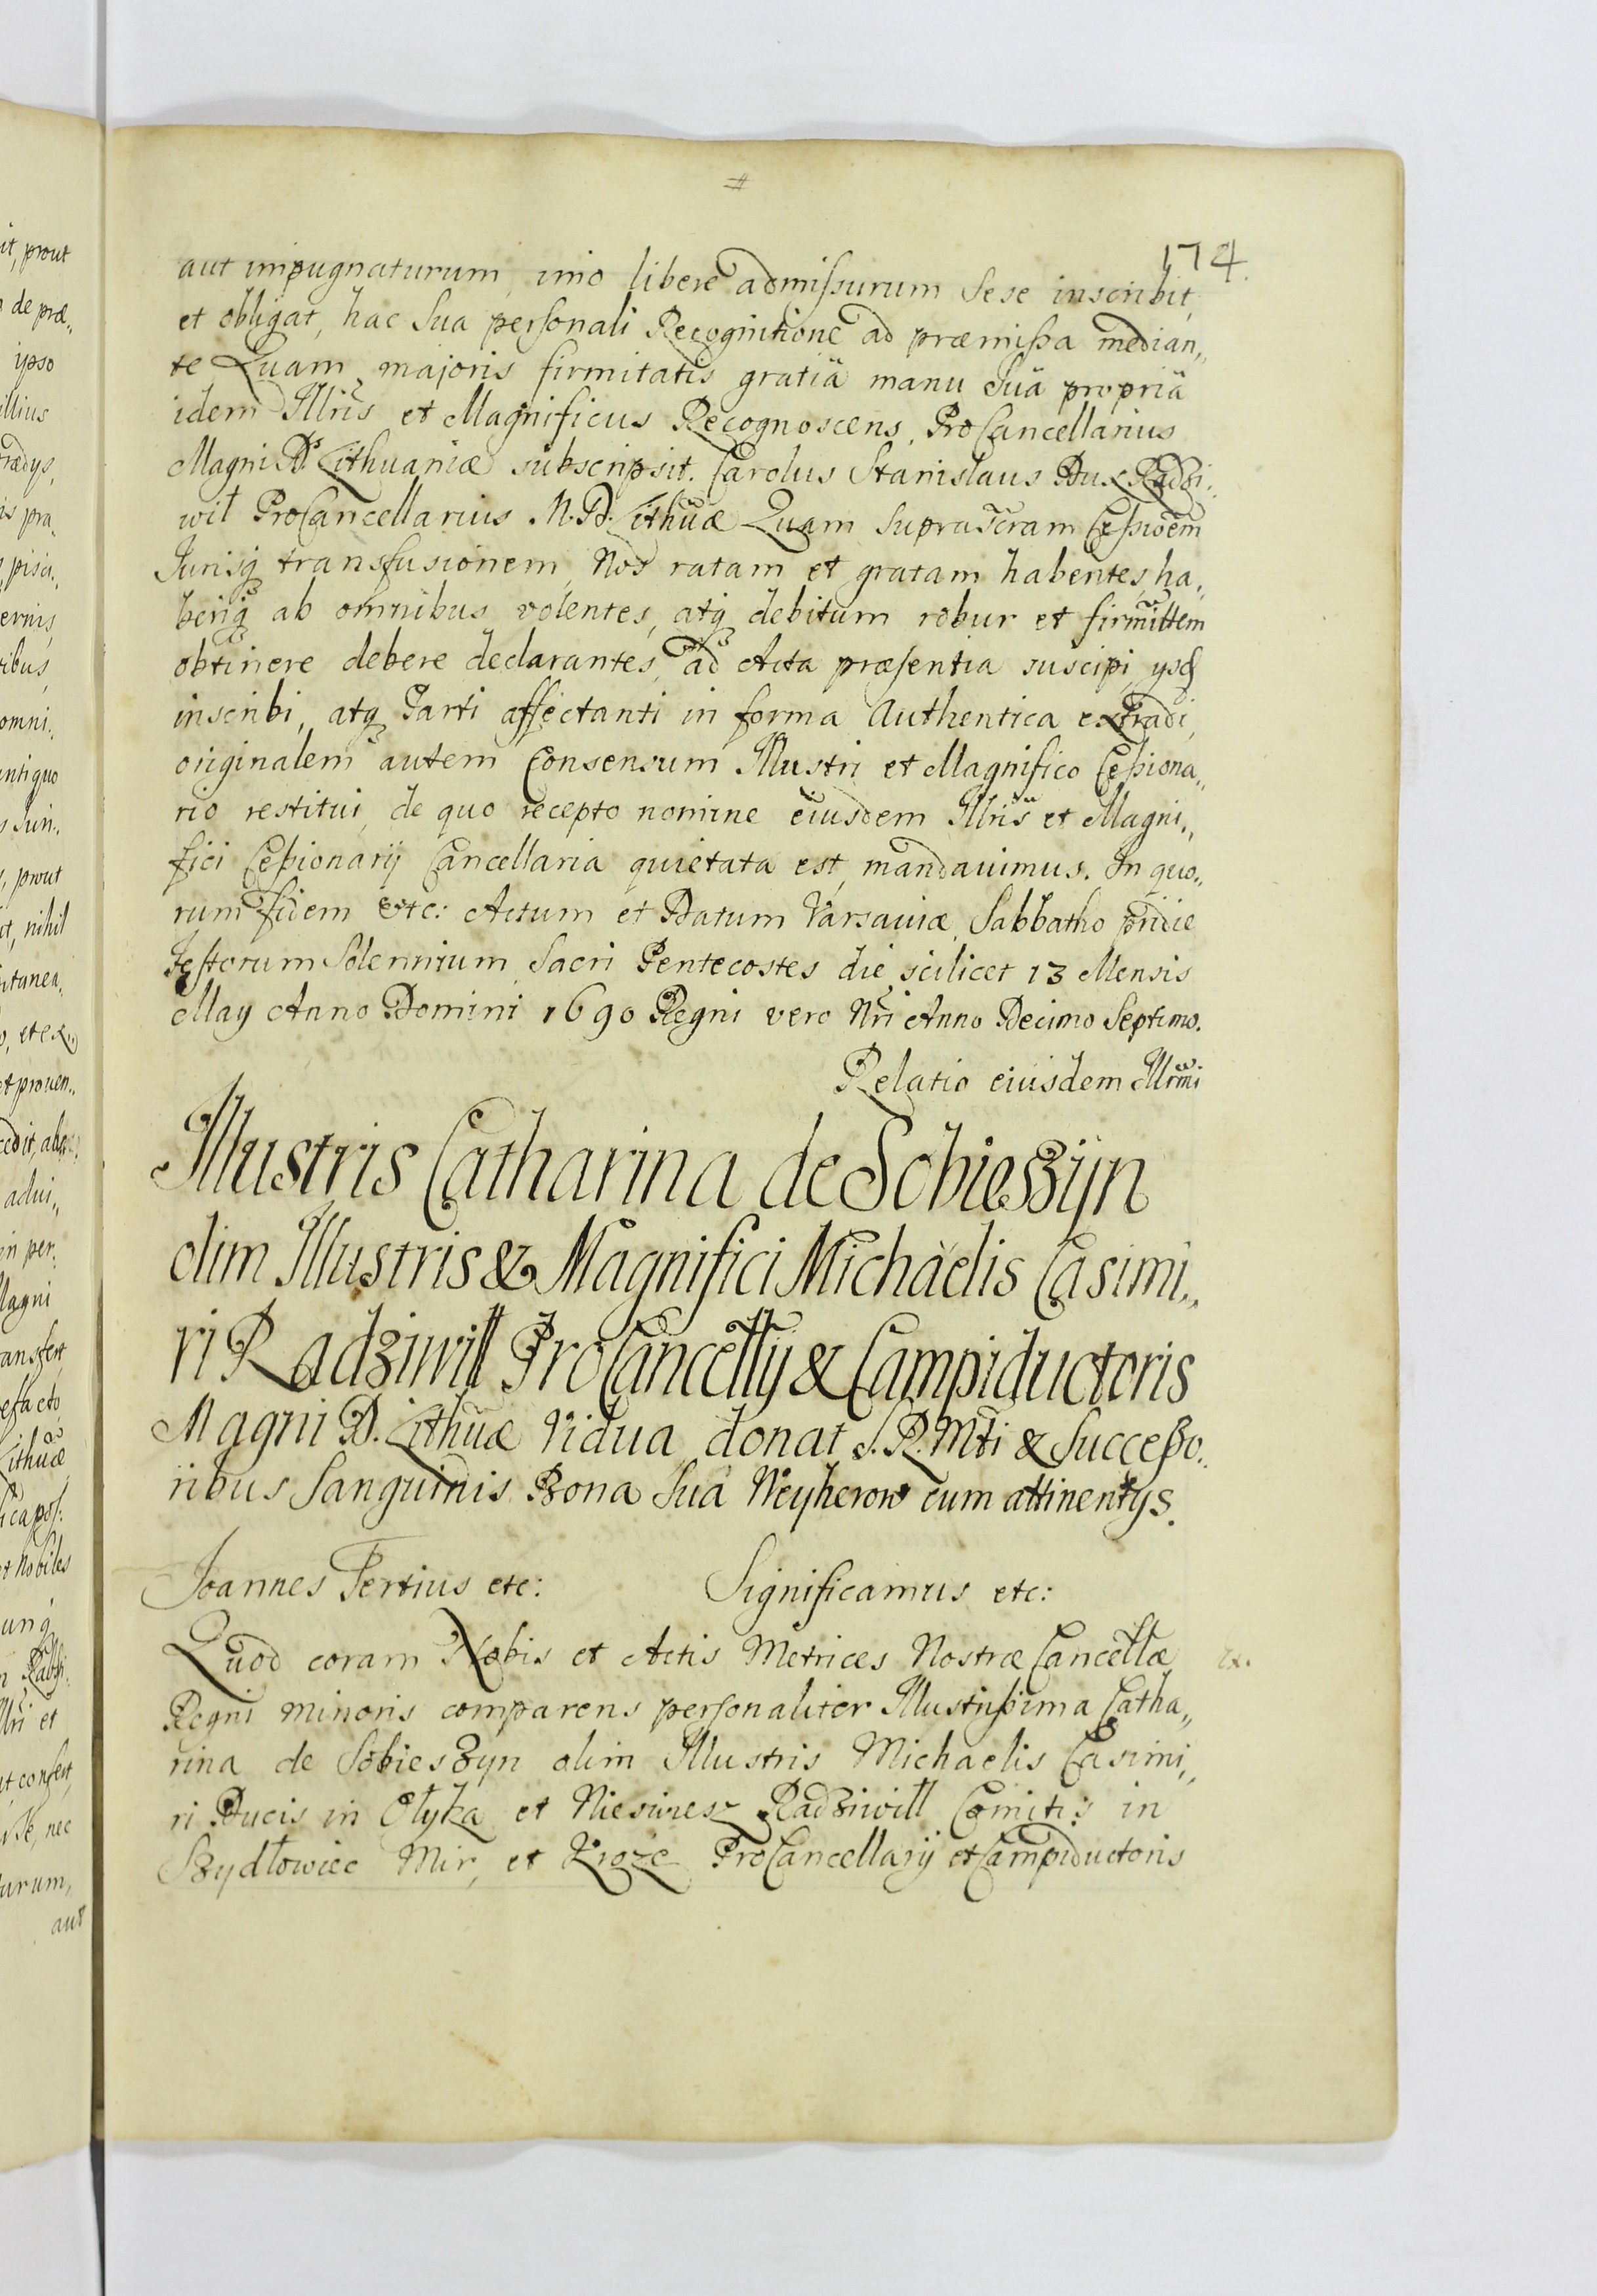 174.
aut impugnaturum, imo libere admissurum sese inscribit,
et obligat, hac sua personali Recognitione ad præmissa median„
te Quam majoris firmitatis gratiâ manu suâ propriâ
idem Illris et Magnificus Recognoscens, ProCancellarius
Magni Ds Lithuaniæ subscripsit. Carolus Stanislaus Dux Radzi„
wił ProCancellarius M. D. Lithuæ Quam suprascram Cessioem
Jurisq transfusionem, Nos ratam et gratam habentes, ha„
beriq ab omnibus volentes, atq debitum robur et firmittem
obtinere debere declarantes, ad Acta præsentia suscipi, ysq
inscribi, atq Parti affectanti in forma Authentica extradi,
originalem autem Consensum Illustri et Magnifico Cessiona„
rio restitui, de quo recepto nomine eiusdem Illris et Magni„
fici Cessionarij Cancellaria quietata est, mandavimus. In quo„
rum fidem etc: Actum et Datum Varsaviæ, Sabbatho pridie
Festorum Solennium Sacri Pentecostes die scilicet 13 Mensis
May Anno Domini 1690 Regni vero Nri Anno Decimo Septimo.
Relatio eiusdem Illrmi
Illustris Catharina de Sobieszyn
olim Illustris & Magnifici Michaelis Casimi„
ri Radziwill ProCancellÿ & Campiductoris
Magni D. Lithuæ Vidua donat S. R. Mti & Successo„
ribus Sanguinis Bona Sua Neyherow cum attinentys.
Joannes Tertius etc: Significamus etc:
Quod coram Nobis et Actis Metrices Nostræ Cancellæ
Regni Minoris comparens personaliter Illustrissima Catha„
rina de Sobieszyn olim Illustris Michaelis Casimi„
ri Ducis in Ołyka et Nieswiesz Radziwiłł Comitis in
Szydłowiec Mir, et Kroże ProCancellarij et Campiductoris